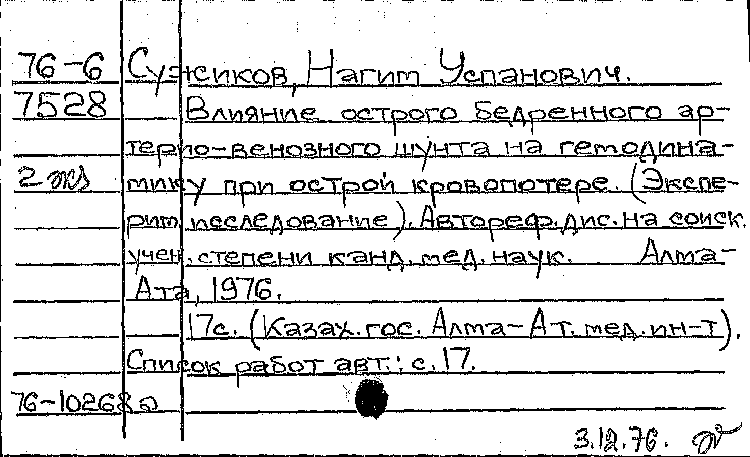 76-6 Сужиков, Нагим Успанович.
7528 Влияние острого бедренного ар-
терио-венозного шунта на гемодина-
2 экз мику при острой кровопотере. (Экспе-
рим. исследование). Автореф. дис. на соиск.
учен. степени канд. мед. наук. Алма-
Ата, 1976.
17с. (Казах. гос. Алма-Ат. мед. ин-т).
Список работ авт.: с. 17.
76-10268
3.12.76.